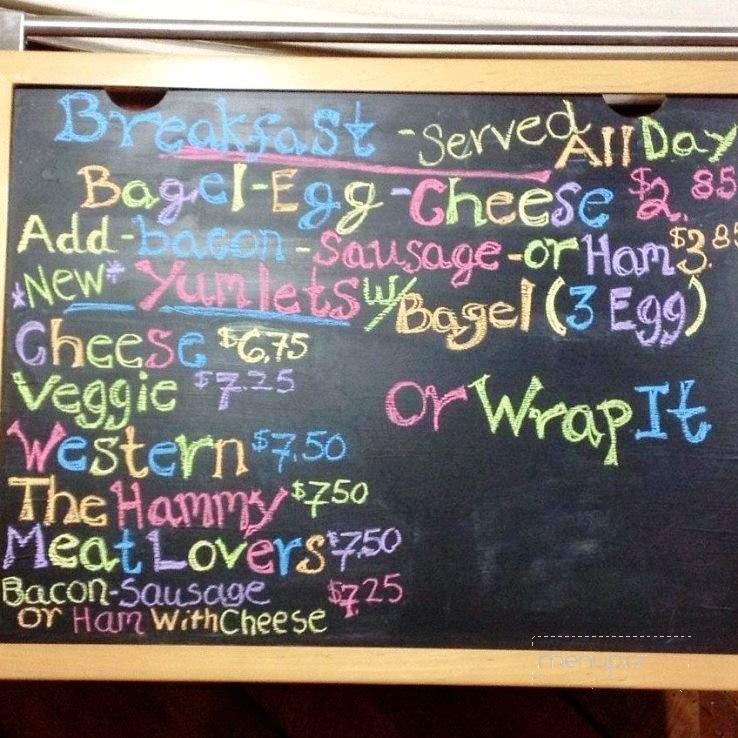 Breakfast - Served All Day
Bagel-Egg-Cheese $2.85
Add-bacon-Sausage-or Ham $3.85
*New* Yumlets w/ Bagel (3 Egg)
Cheese $6.75
Veggie $7.25
Or Wrap It
Western $7.50
The Hammy $750
Meat Lovers $7.50
Bacon-Sausage $7.25
or Ham With Cheese
menupix